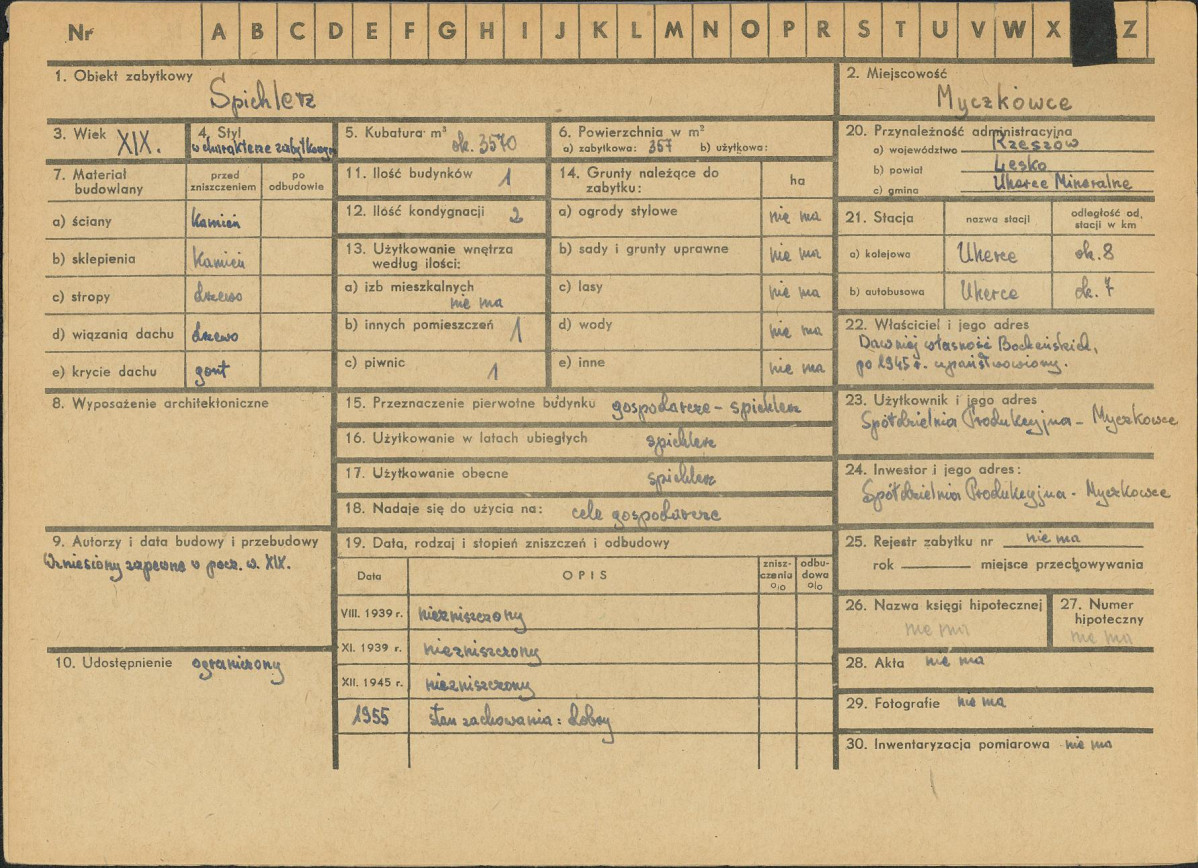 Nr A B C D E F G H I J K L M N O P R S T U V W X Z
1. Obiekt zabytkowy
Spichlerz
2. Miejscowość
Myczkowce
3. Wiek XIX.
4. Styl
w charakterze zabytkowym
5. Kubatura m³
ok. 3570
6. Powierzchnia w m²
a) zabytkowa: 357 b) użytkowa:
7. Materiał budowlany
przed zniszczeniem
po odbudowie
a) ściany kamień
b) sklepienia kamień
c) stropy drzewo
d) wiązania dachu drzewo
e) krycie dachu gont
8. Wyposażenie architektoniczne
9. Autorzy i data budowy i przebudowy
Wzniesiony zapewne w pocz. w. XIX.
10. Udostępnienie ograniczony
11. Ilość budynków 1
12. Ilość kondygnacji 2
13. Użytkowanie wnętrza
według ilości:
a) izb mieszkalnych
nie ma
b) innych pomieszczeń 1
c) piwnic 1
14. Grunty należące do
zabytku:
ha
a) ogrody stylowe nie ma
b) sady i grunty uprawne nie ma
c) lasy nie ma
d) wody nie ma
e) inne nie ma
15. Przeznaczenie pierwotne budynku gospodarcze - spichlerz
16. Użytkowanie w latach ubiegłych spichlerz
17. Użytkowanie obecne spichlerz
18. Nadaje się do użycia na: cele gospodarcze
19. Data, rodzaj i stopień zniszczeń i odbudowy
Data OPIS
znisz-
czenia
%
odbu-
dowa
%
VIII. 1939 r. niezniszczony
XI. 1939 r. niezniszczony
XII. 1945 r. niezniszczony
1955 stan zachowania: dobry
20. Przynależność administracyjna
a) województwo Rzeszów
b) powiat Lesko
c) gmina Uherce Mineralne
21. Stacja
nazwa stacji
odległość od.
stacji w km
a) kolejowa Uherce ok. 8
b) autobusowa Uherce ok. 7
22. Właściciel i jego adres
Dawniej własność Bocheńskich,
po 1945 r. upaństwowiony.
23. Użytkownik i jego adres
Spółdzielnia Produkcyjna - Myczkowce
24. Inwestor i jego adres:
Spółdzielnia Produkcyjna - Myczkowce
25. Rejestr zabytku nr nie ma
rok miejsce przechowywania
26. Nazwa księgi hipotecznej
nie ma
27. Numer
hipoteczny
nie ma
28. Akta nie ma
29. Fotografie nie ma
30. Inwentaryzacja pomiarowa nie ma